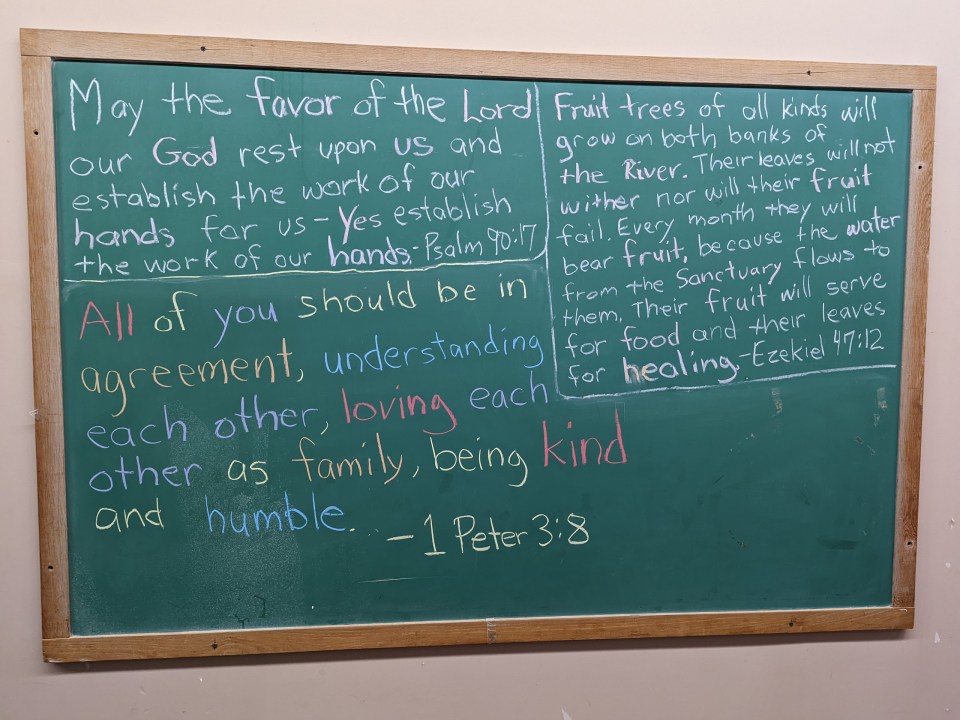 May the favor of the Lord
our God rest upon us and
establish the work of our
hands for us - Yes establish
the work of our hands. - Psalm 90:17
Fruit trees of all kinds will
grow on both banks of
the River. Their leaves will not
wither nor will their fruit
fail. Every month they will
bear fruit, because the water
from the Sanctuary flows to
them. Their fruit will serve
for food and their leaves
for healing. - Ezekiel 47:12
All of you should be in
agreement, understanding
each other, loving each
other as family, being kind
and humble.
- 1 Peter 3:8